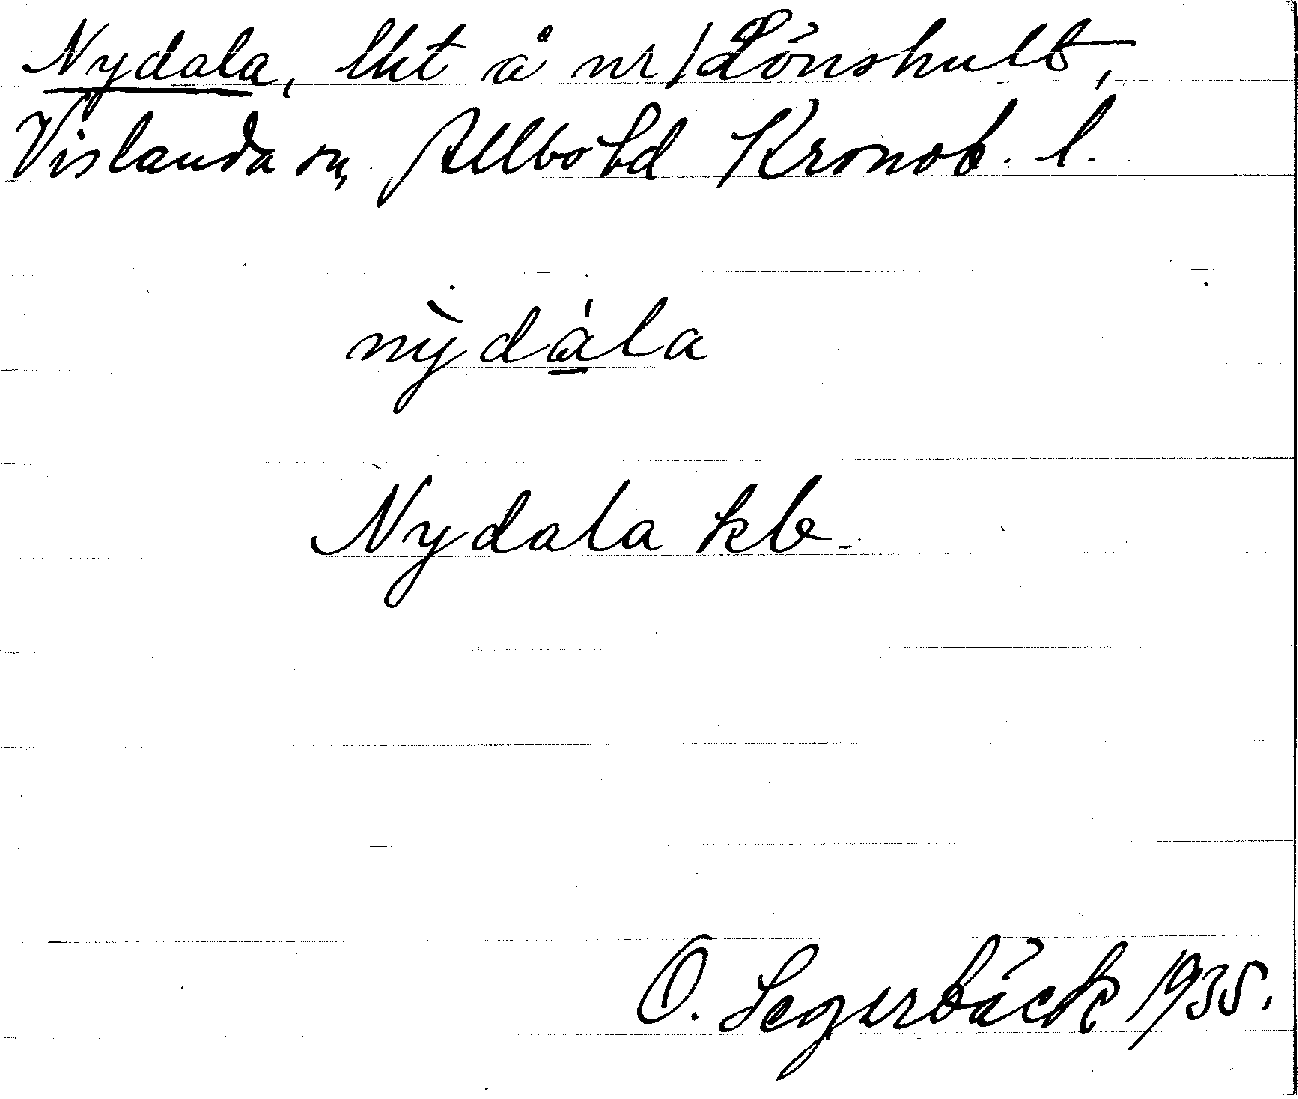 Nydala, lht å nr 1 Lönshult,
Vislanda sn, Allbo hd Kronob. l.
nỳdála
Nydala kb.
O. Segerbäck 1935.